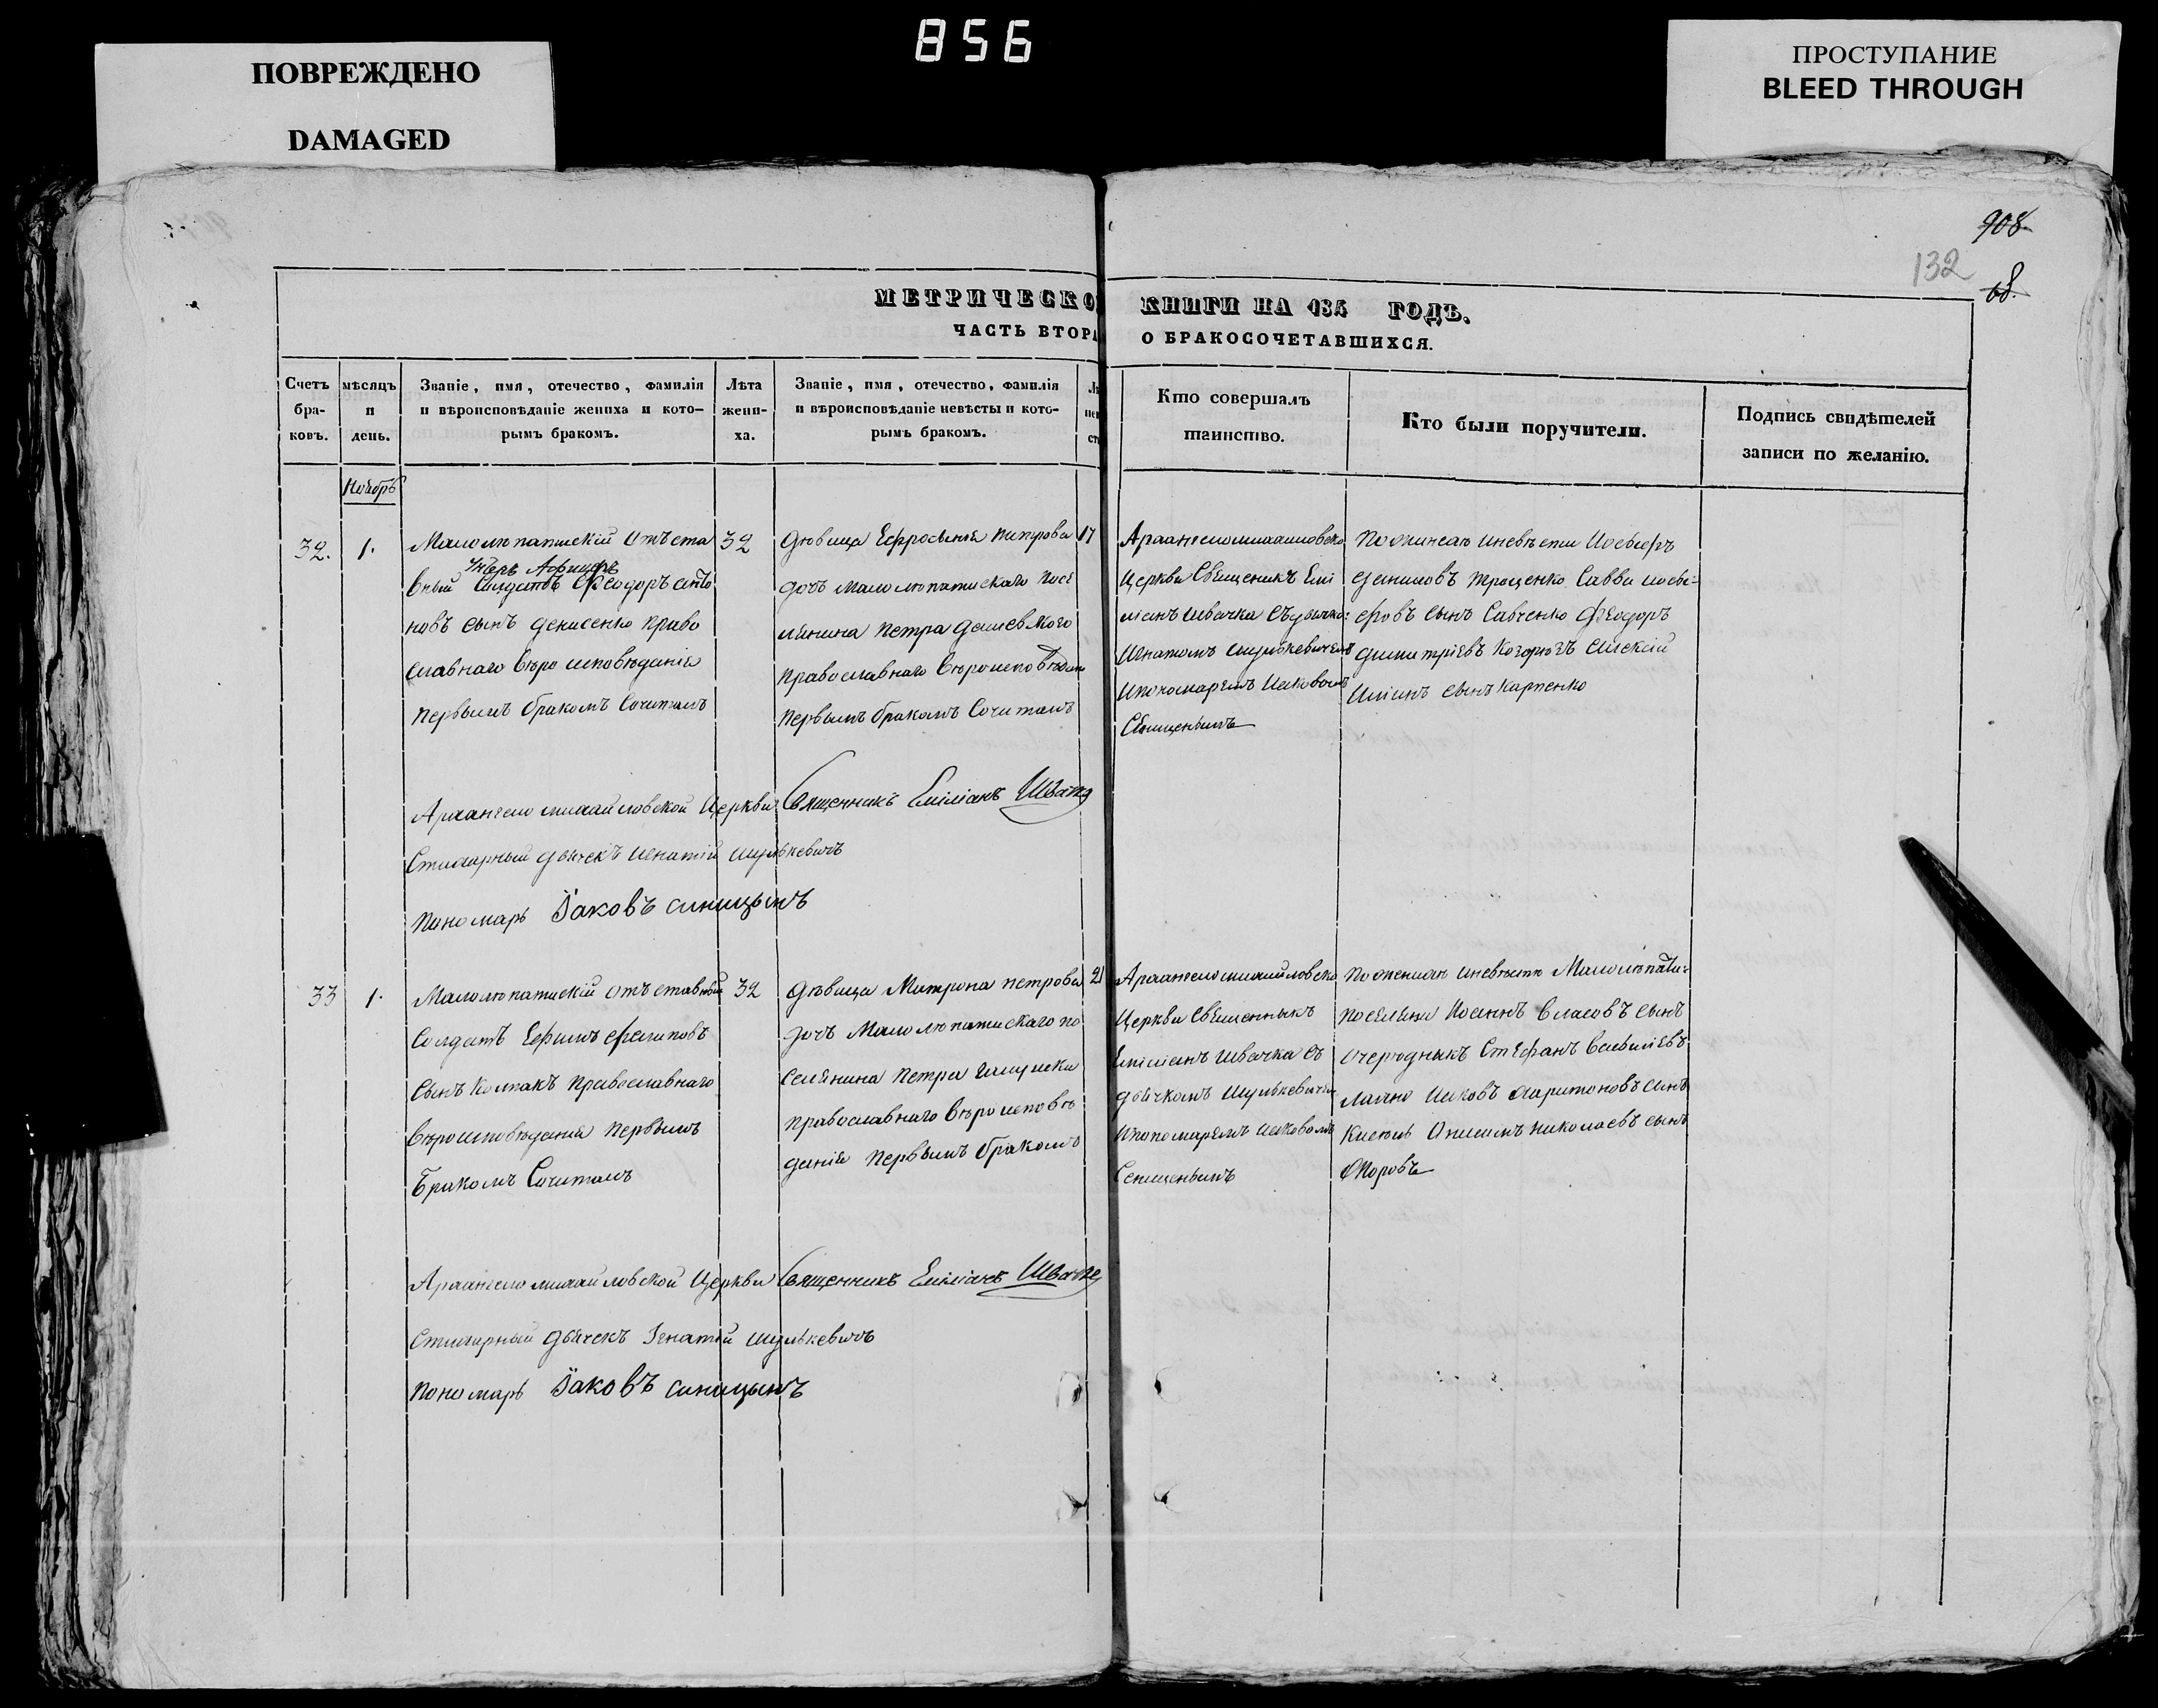 856
ПОВРЕЖДЕНО
DAMAGED
ПРОСТУПАНИЕ
BLEED THROUGH
908
132
68.
МЕТРИЧЕСКО
КНИГИ НА 185 ГОДЪ.
ЧАСТЬ ВТОРА
О БРАКОСОЧЕТАВШИХСЯ.
Счетъ бра- ковъ.
мѣсяцъ и день.
Званіе, имя, отечество, фамилія и вѣроисповѣданіе жениха и кото- рымъ бракомъ.
Лѣта жени- ха.
Званіе, имя, отечество, фамилія и вѣроисповѣданіе невѣсты и кото- рымъ бракомъ.
Кто совершалъ таинство.
Кто были поручители.
Подпись свидѣтелей записи по желанію.
Ноябрь
32.
1.
Малолепатискій Отъста
Унтеръ Афицеръ
вный Солдатъ Феодоръ
новъ сынъ денисенко право
славнаго вѣро исповѣданія
первымъ бракомъ Сочитанъ
32
дѣвица Ефросинія петрова
дочъ Малолепатискаго посе
лянина петра
православнаго вѣроисповѣдан
первымъ бракомъ Сочитанъ
17
Архангеломихайловско
Церкви Священикъ Емі
ліанъ Швачка съ дьячко:
Игнатомъ Шулькевичемъ
Ипономаремъ Иаковомъ
Синицынымъ
По женихѣ и невѣсти Иосифъ
даниловъ троценко Савва иоси-
фовъ сынъ Савченко Феодоръ
димитріевъ Алексій
сынъ Карпенко
Архангело михайловской Церкви Священникъ Емиліанъ Швачка
Стихарный дьячекъ Игнатій шулькевичъ
Пономарь Іаковъ синицынъ
33
1.
Малолепатискій отъставный
Солдатъ Ефимъ филиповъ
Сынъ Колпакъ православнаго
вѣроисповѣданія первымъ
Бракомъ Сочитанъ
32
дѣвица Матрона петрова
дочъ Малолепатискаго по
селянина петра галушка
православнаго вѣроисповѣ
данія первымъ бракомъ
21
Архангеломихайловско
Церкви Священникъ
Емиліанъ Швачка съ
дьячкомъ Шулькевичем
Ипономаремъ Иаковомъ
Синицынымъ
По женихѣ и невѣстѣ Малолепати:
поселяни Иоаннъ власовъ сынъ
Очередникъ Стефанъ василіевъ
Иаковъ харитоновъ сынъ
Кисель Анисимъ николаевъ сынъ
Архангело михайловской Церкви Священникъ Емиліанъ Швачка
Стихарный дьячекъ Ігнатій шулькевичъ
Пономарь Іаковъ синицынъ